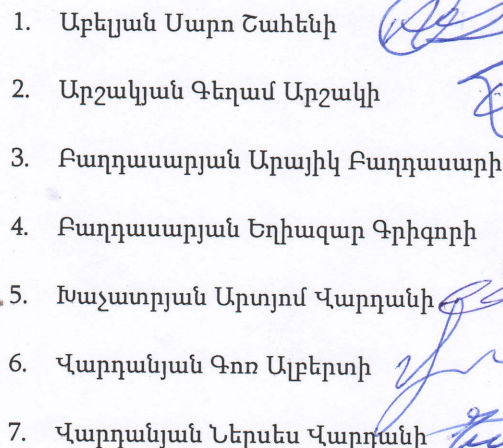 1. Աբելյան Սարո Շահենի
2. Արշակյան Գեղամ Արշակի
3. Բաղդասարյան Արայիկ Բաղդասարի
4. Բաղդասարյան Եղիազար Գրիգորի
5. Խաչատրյան Արտյոմ Վարդանի
6. Վարդանյան Գոռ Ալբերտի
7. Վարդանյան Ներսես Վարդանի